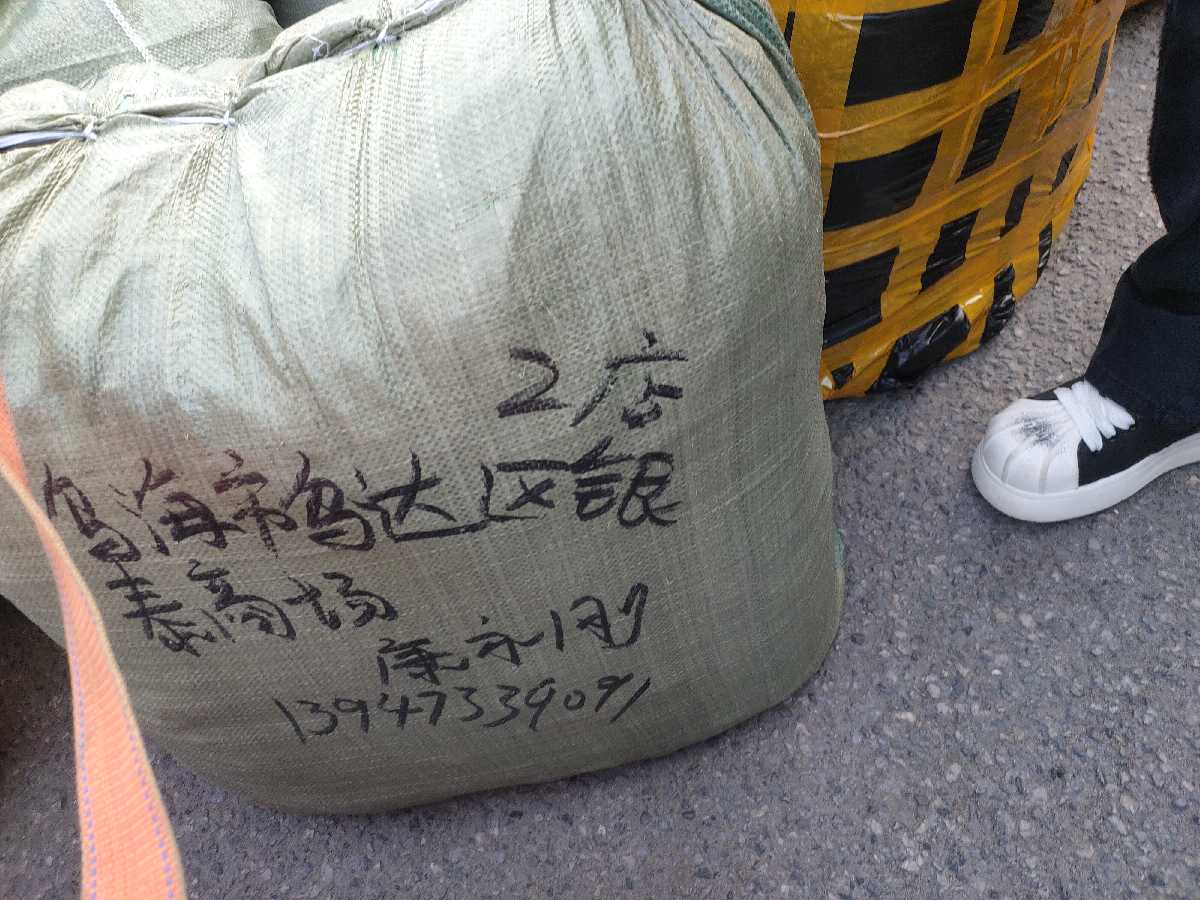 2店
乌海市乌达区银
泰商场
康永刚
13947339091